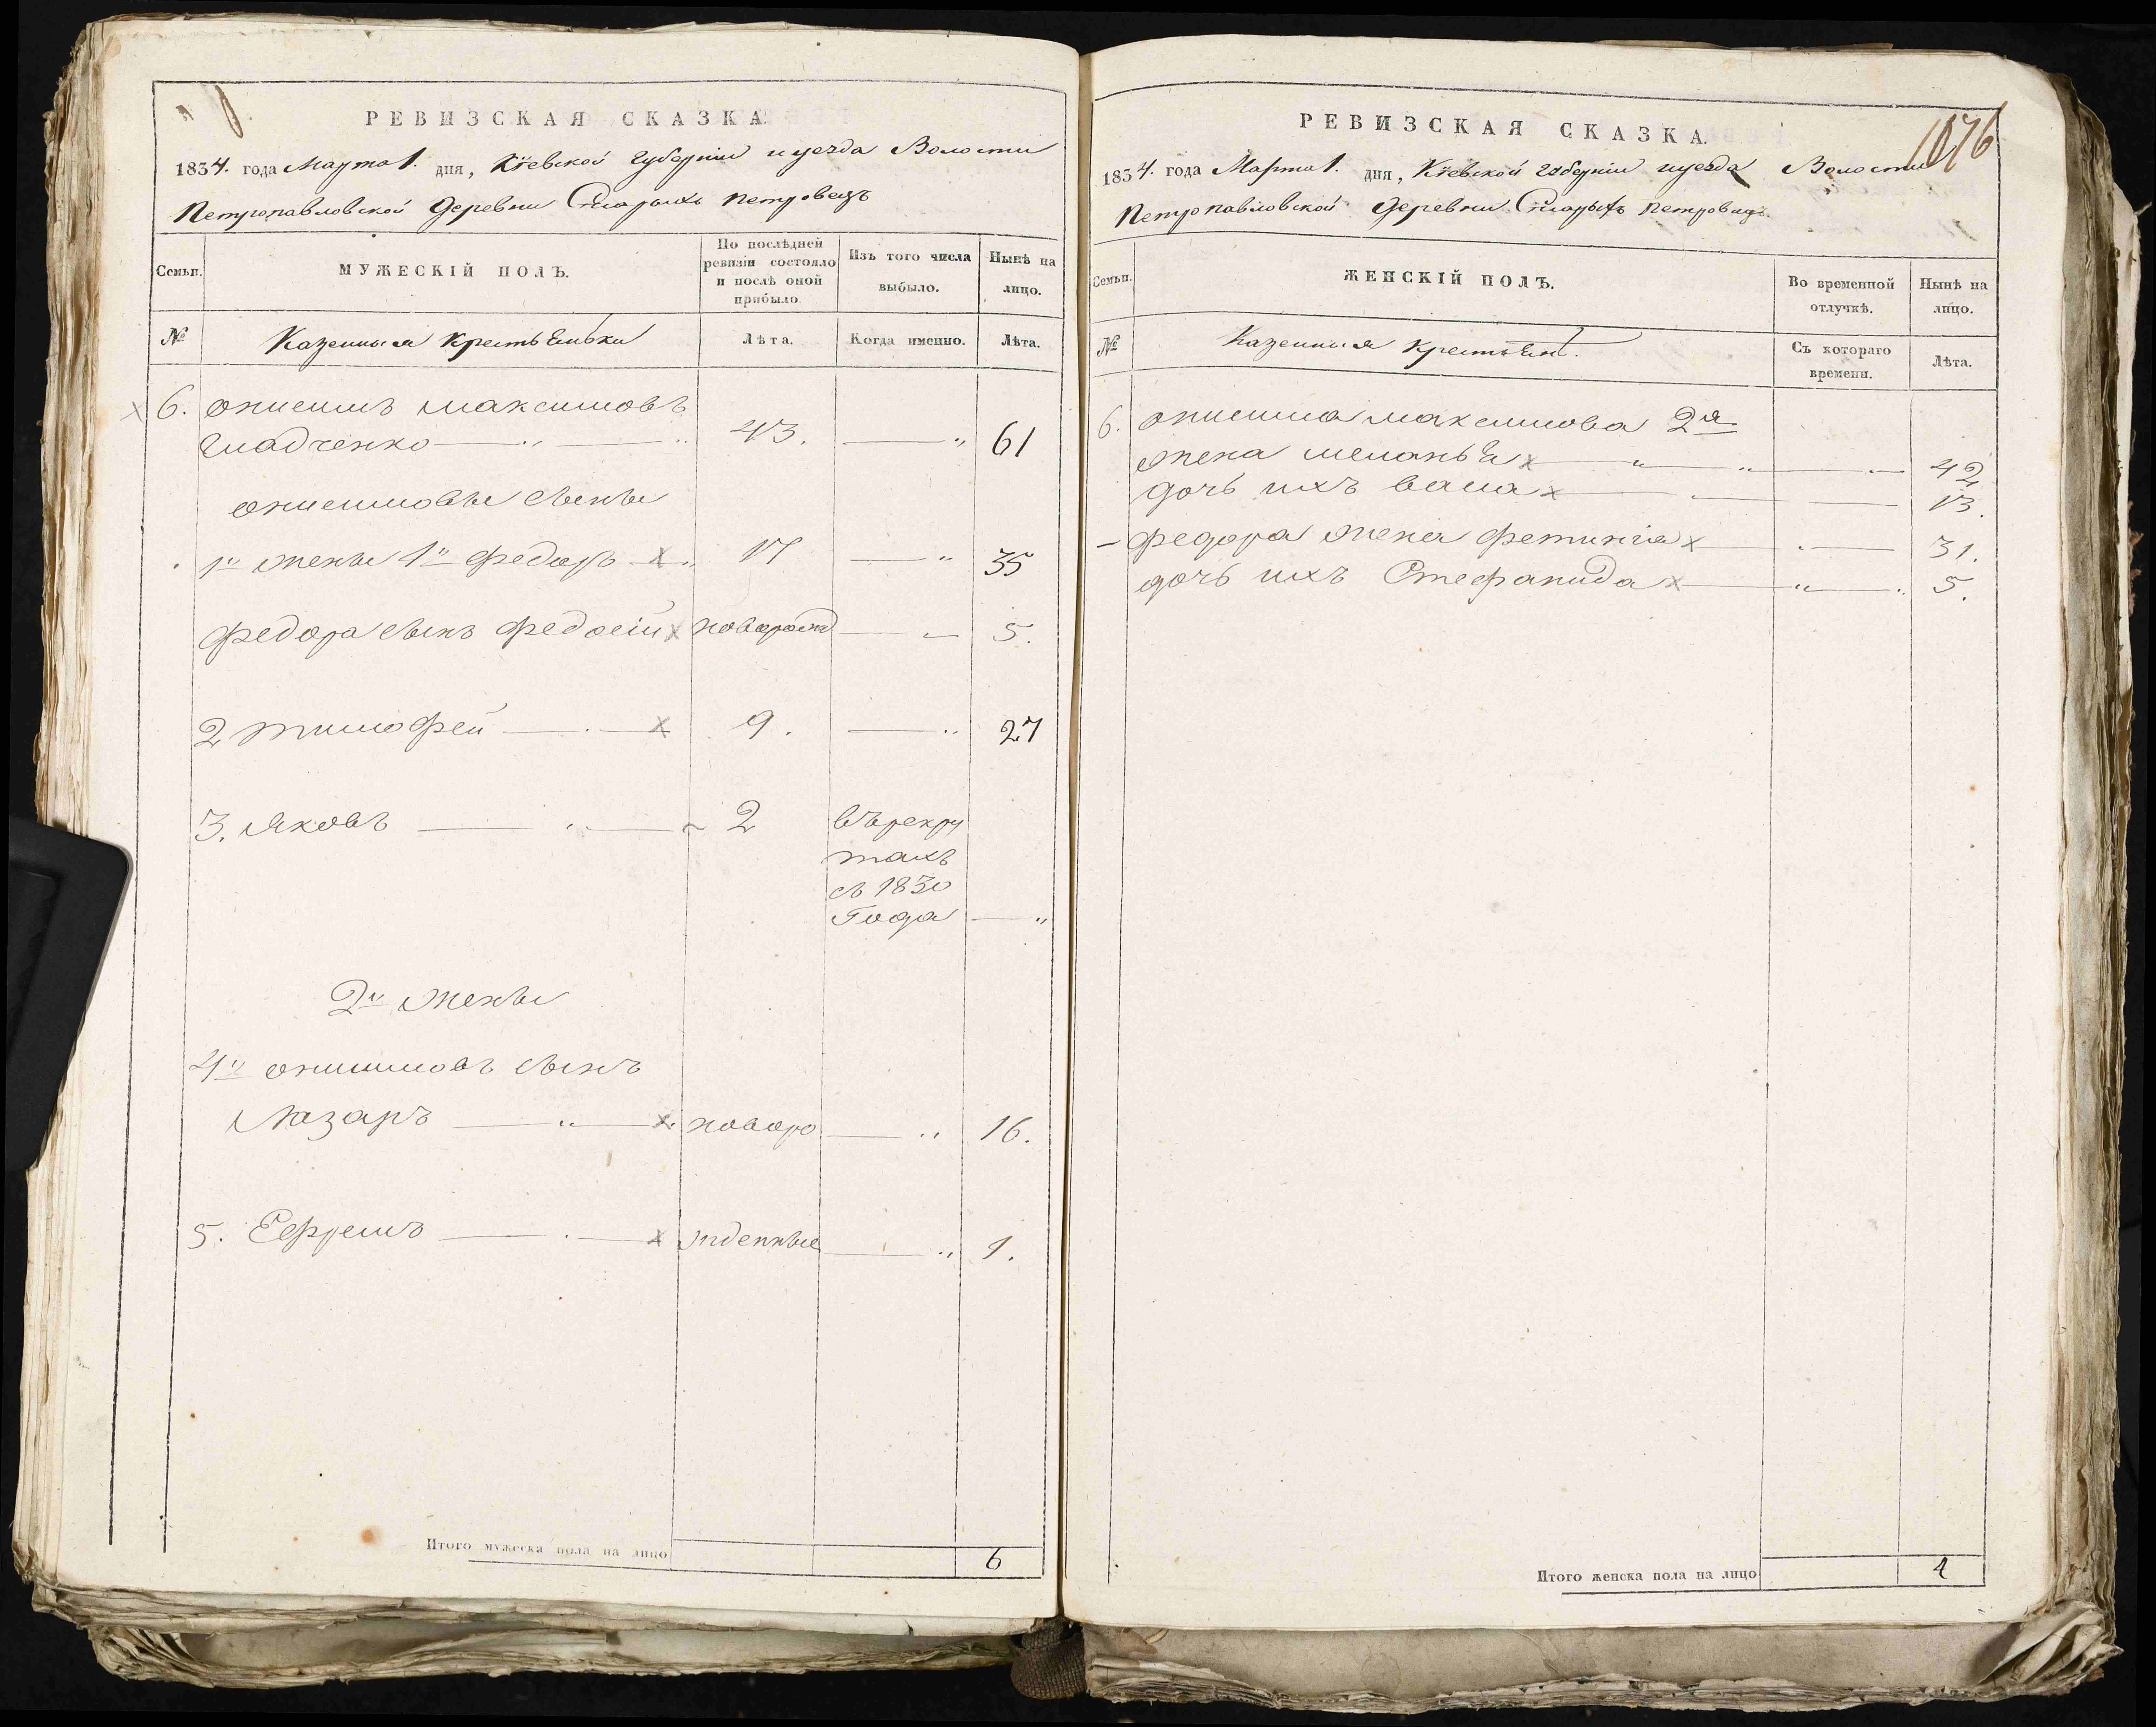 РЕВИЗСКАЯ СКАЗКА.
1834. года Марта 1. дня, Кіевской губерніи и уезда Волости
Петропавловской деревни Старыхъ петровецъ
Семьи.
МУЖЕСКІЙ ПОЛЪ.
По послѣдней
ревизіи состояло
и послѣ оной
прибыло.
Изъ того числа
выбыло.
Нынѣ на
лицо.
№
Казенныя
Лѣта.
Когда именно.
Лѣта.
6. онисимъ максимовъ
гладченко 43. 61
онисимовы сыны
1й жены 1й федоръ 17 35
федора сынъ федосій новорожд 5.
2 тимофей 9. 27
3. яковъ 2 въ рекру
тахъ
съ 1830
Года
2й жены
4й онисимовъ сынъ
Лазаръ новоро 16.
5. Ефремъ жденные 1.
Итого мужеска пола на лицо 6
1076
РЕВИЗСКАЯ СКАЗКА.
1834. года Марта 1. дня, Кіевской губерніи и уезда Волости
Петропавловской деревни Старыхъ петровецъ
Семьи.
ЖЕНСКІЙ ПОЛЪ.
Во временной
отлучкѣ.
Нынѣ на
лицо.
№
Казенныя
Съ котораго
времени.
Лѣта.
6. онисима максимова 2я
жена меланья 42
дочь ихъ васа 13.
федора жена фетинія 31.
дочь ихъ Стефанида 5.
Итого женска пола на лицо 4